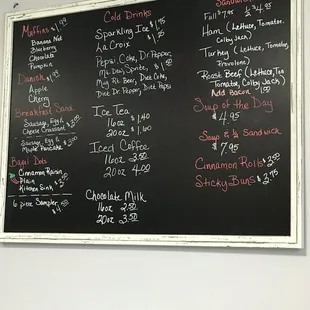 Muffins $1.99
Banana Nut
Blueberry
Chocolate
Pumpkin
Danish
Apple
Cherry
Breakfast Sand
Sausage, Egg &
Cheese Croissant
Sausage, Egg &
Maple Pancake $3.00
Bagel Dots
Cinnamon Raisin
Plain
Kitchen Sink $3.50
6 piece Sampler
$4.50
Cold Drinks
Sparkling Ice $1.95
La Croix $1.25
Pepsi, Coke, Dr. Pepper,
Mt. Dew, Sprite,
Mug Rt. Beer, Diet Coke,
Diet Dr. Pepper, Diet Pepsi
Ice Tea
16oz $1.40
20oz $1.60
Iced Coffee
16oz 3.50
20oz 4.00
Chocolate Milk
16oz 2.50
20oz 3.50
Full $7.95 ½ $4.95
Ham (Lettuce, Tomato,
Colby Jack)
Turkey (Lettuce, Tomato,
Provolone)
Roast Beef (Lettuce,
Tomato, Colby Jack)
Add Bacon $1.00
Soup of the Day
$4.95
Soup & ½ Sandwich
$7.95
Cinnamon Rolls $3.50
Sticky Buns $2.95